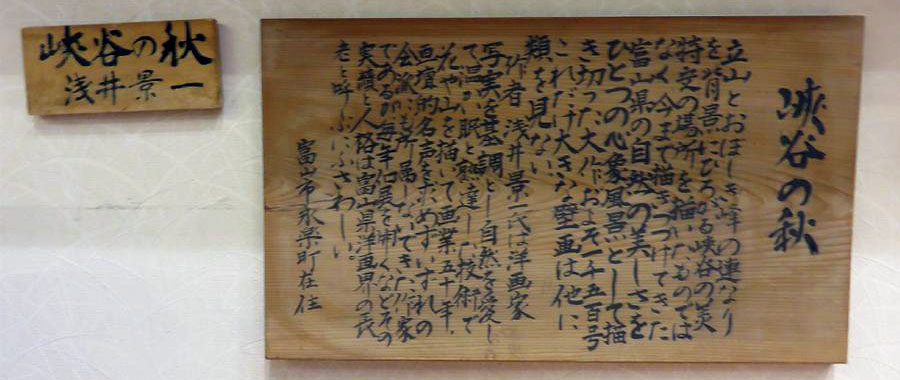 峡谷の秋
浅井景一
峡谷の秋
立山とおぼしき峰の連なり
を背景にひろがる峡谷の美
特定の場所を描いたものでは
なく今まで描きつづけてきた
富山県の自然の美しさを
ひとつの心象風景として描
き切った大作、およそ一千五百号
これだけ大きな壁画は他に
類を見ない
作者 浅井景一氏は洋画家
写実を基調とし自然を愛し
て温かい眼と熟達した技術で
花や山を描いて画業五十年、
画壇的名声を求めずいずれの
会派にも所属しないできた作家
であるが毎年個展を開くなどその
実績と人格は富山県洋画界の長
老と呼ぶにふさわしい。
富山市永楽町在住